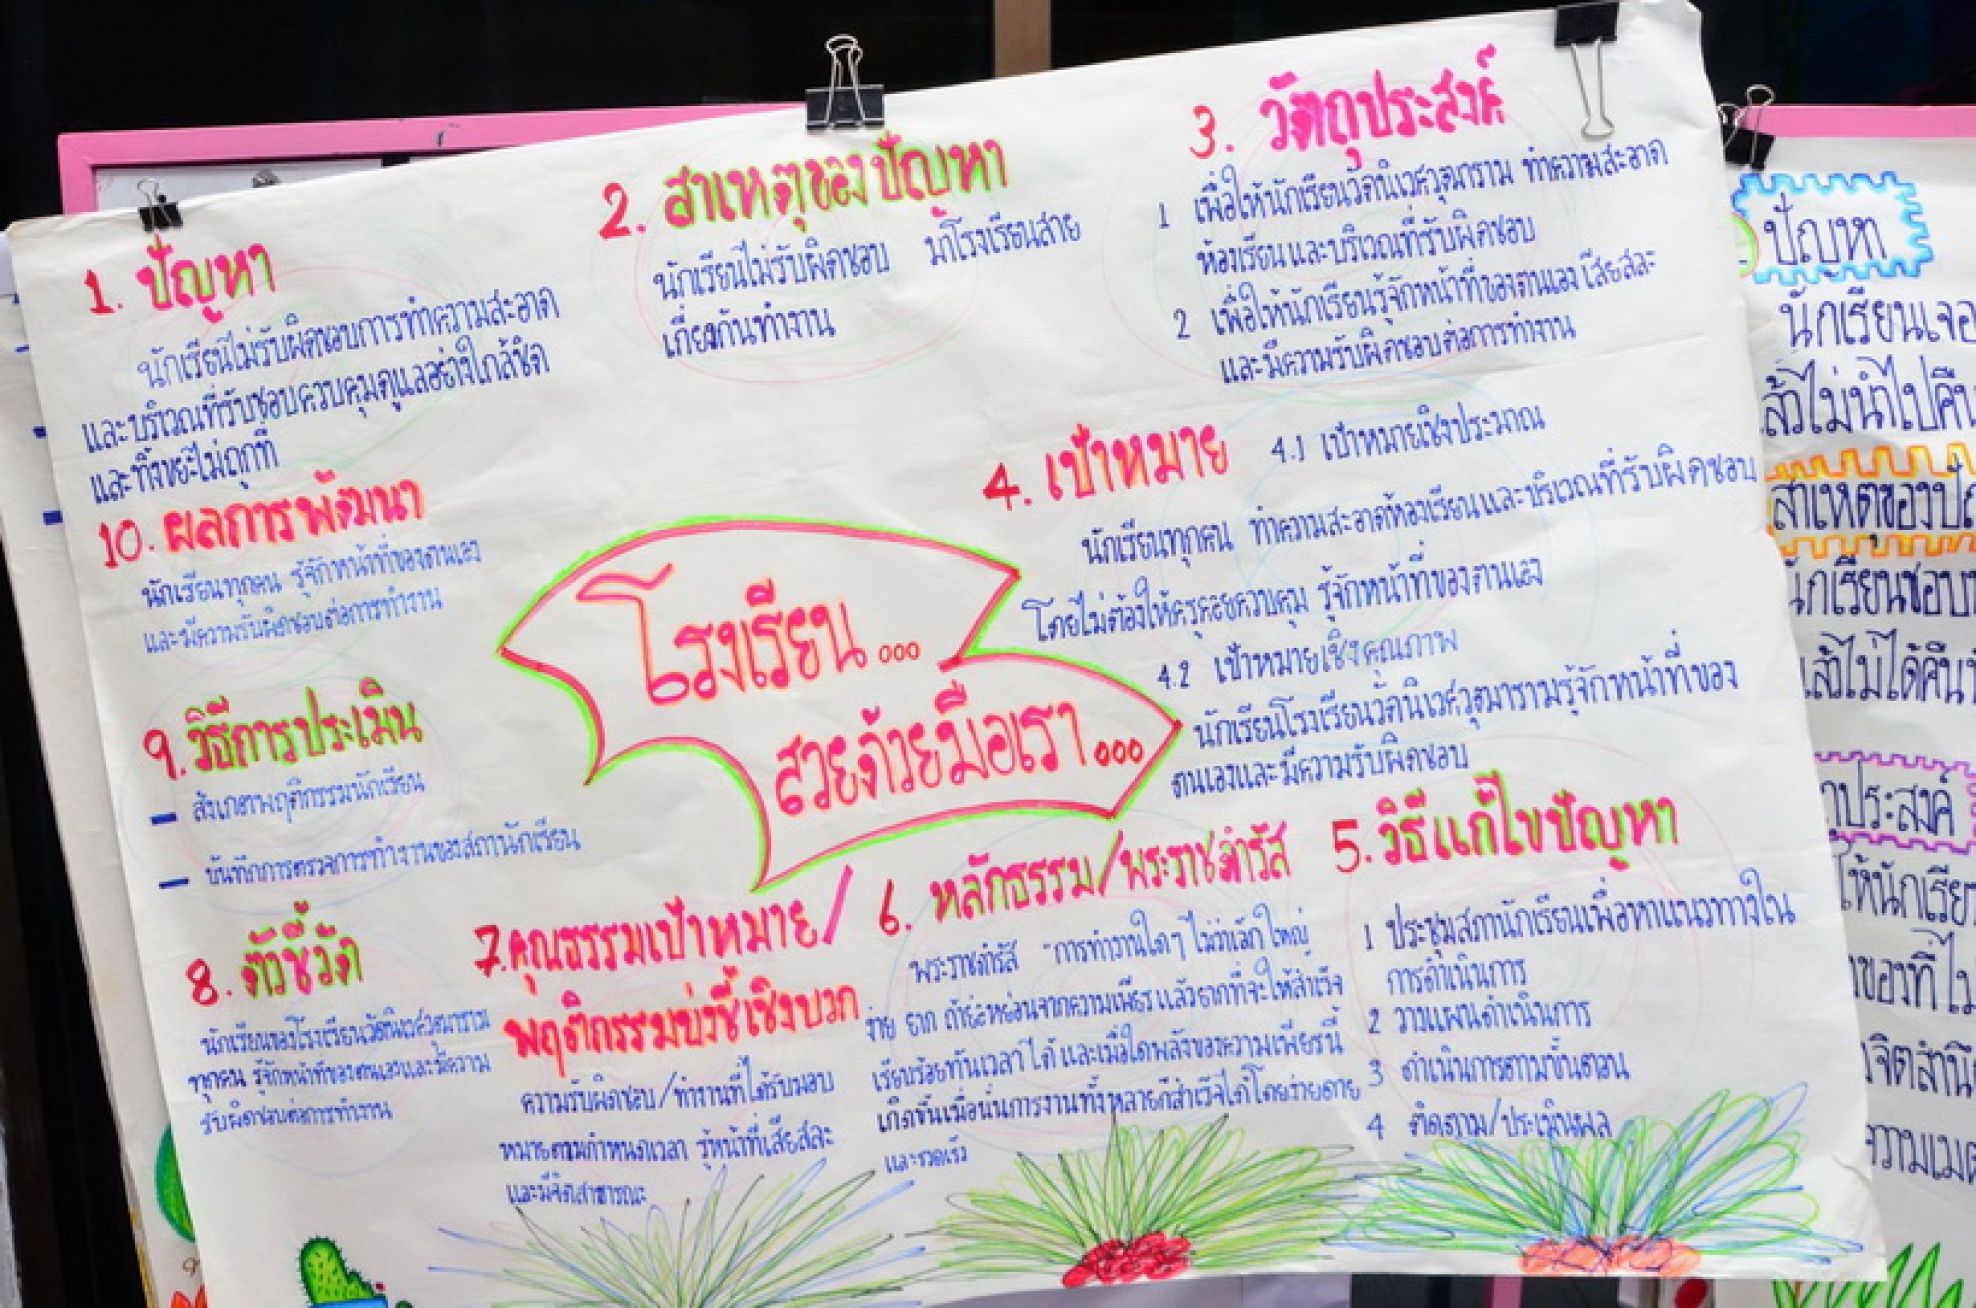 1. ปัญหา
นักเรียนไม่รับผิดชอบการทำความสะอาด
และบริเวณที่รับชอบควบคุมดูแลอย่างใกล้ชิด
และทิ้งขยะไม่ถูกที่
2. สาเหตุของปัญหา
นักเรียนไม่รับผิดชอบ มาโรงเรียนสาย
เกี่ยงกันทำงาน
3. วัตถุประสงค์
1 เพื่อให้นักเรียนวัดนิเวศวุฒาราม ทำความสะอาด
ห้องเรียนและบริเวณที่รับผิดชอบ
2 เพื่อให้นักเรียนรู้จักหน้าที่ของตนเอง เสียสละ
และมีความรับผิดชอบต่อการทำงาน
4. เป้าหมาย 4.1 เป้าหมายเชิงประมาณ
นักเรียนทุกคน ทำความสะอาดห้องเรียนและบริเวณที่รับผิดชอบ
โดยไม่ต้องให้ครูคอยควบคุม รู้จักหน้าที่ของตนเอง
4.2 เป้าหมายเชิงคุณภาพ
นักเรียนโรงเรียนวัดนิเวศวุฒารามรู้จักหน้าที่ของ
ตนเองและมีความรับผิดชอบ
โรงเรียน...
สวยด้วยมือเรา...
5. วิธีแก้ไขปัญหา
1 ประชุมสภานักเรียนเพื่อหาแนวทางใน
การดำเนินการ
2 วางแผนดำเนินการ
3 ดำเนินการตามขั้นตอน
4 ติดตาม/ประเมินผล
6. หลักธรรม/พระราชดำรัส
พระราชดำรัส "การทำงานใดๆ ไม่ว่าเล็ก ใหญ่
ง่าย ยาก ถ้าย่อหย่อนจากความเพียรแล้วยากที่จะให้สำเร็จ
เรียบร้อยทันเวลาได้ และเมื่อใดพลังของความเพียรนี้
เกิดขึ้นเมื่อนั่นการงานทั้งหลายก็สำเร็จได้โดยง่ายดาย
และรวดเร็ว
7. คุณธรรมเป้าหมาย/
พฤติกรรมบ่งชี้เชิงบวก
ความรับผิดชอบ/ทำงานที่ได้รับมอบ
หมายตามกำหนดเวลา รู้หน้าที่เสียสละ
และมีจิตสาธารณะ
8. ตัวชี้วัด
นักเรียนของโรงเรียนวัดนิเวศวุฒาราม
ทุกคน รู้จักหน้าที่ของตนเองและมีความ
รับผิดชอบต่อการทำงาน
9. วิธีการประเมิน
- สังเกตพฤติกรรมนักเรียน
- บันทึกการตรวจการทำงานของสภานักเรียน
10. ผลการพัฒนา
นักเรียนทุกคน รู้จักหน้าที่ของตนเอง
และมีความรับผิดชอบต่อการทำงาน
ปัญหา
นักเรียนเจอ
ไม่นำไปคืน
สาเหตุของ
นักเรียนชอบ
ไม่ได้คืน
ประสงค์
ให้นักเรียน
ของที่ไม่